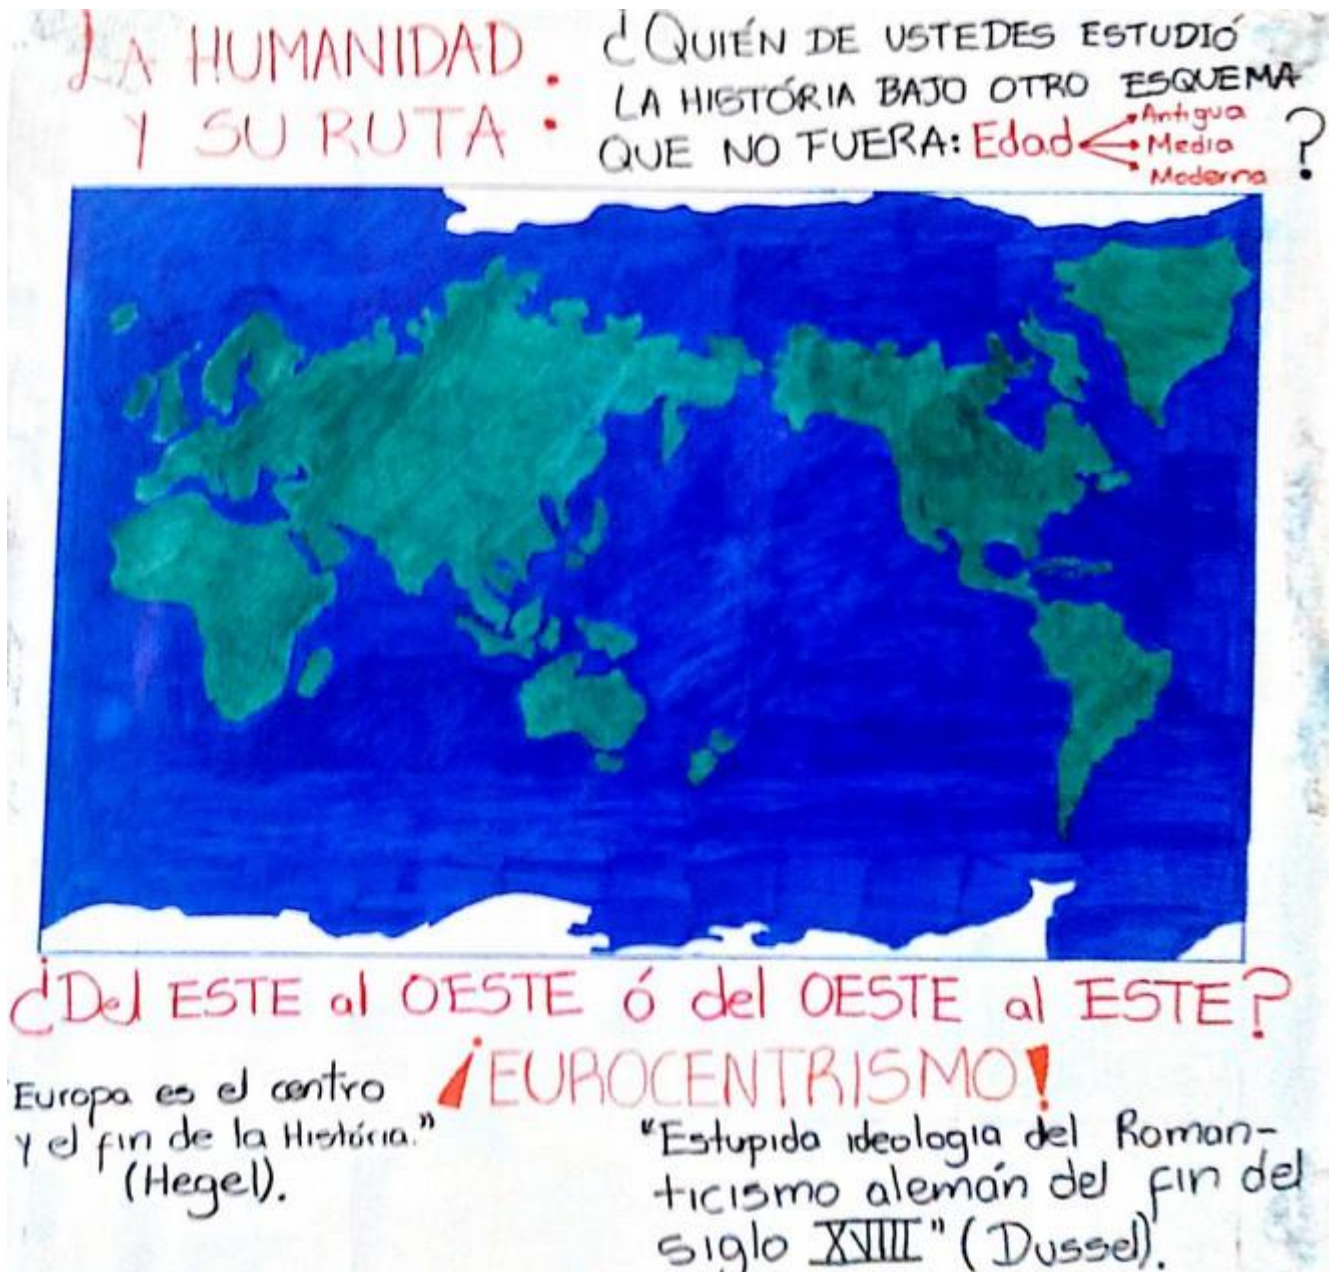 LA HUMANIDAD
Y SU RUTA :
¿QUIÉN DE USTEDES ESTUDIÓ
LA HISTÓRIA BAJO OTRO ESQUEMA
QUE NO FUERA: Edad ?
Antigua
Media
Moderna
¿Del ESTE al OESTE ó del OESTE al ESTE?
¡EUROCENTRISMO!
Europa es el centro
y el fin de la História."
(Hegel).
"Estupida ideologia del Roman-
ticismo alemán del fin del
siglo XVIII" (Dussel).